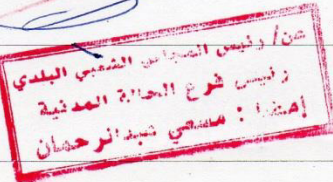 عن/ رئيس المجلس الشعبي البلدي
رئيس فرع الحالة المدنية
إمضاء : مسعي عبدالرحمان